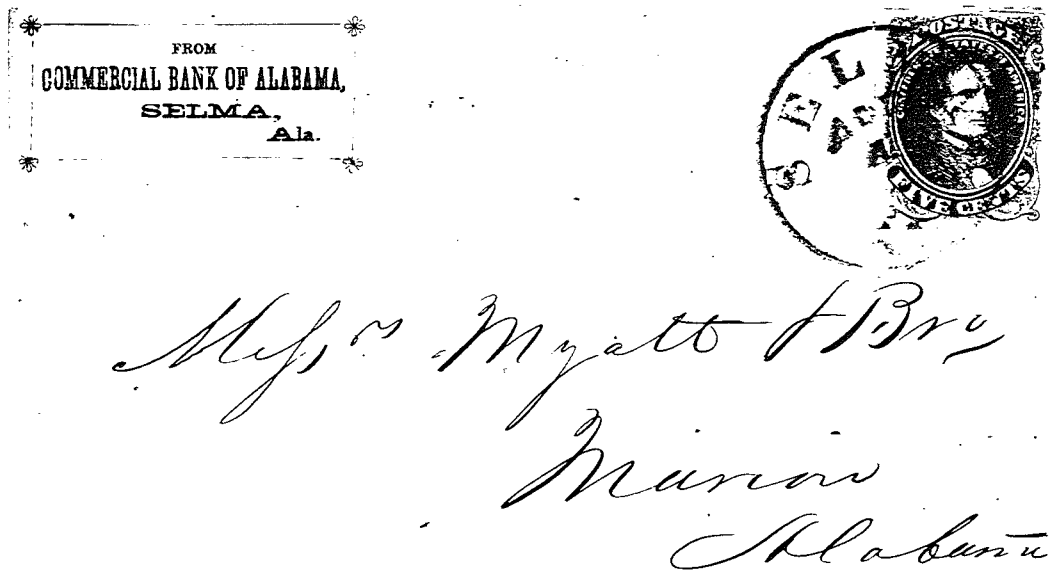 FROM
COMMERCIAL BANK OF ALABAMA,
SELMA,
Ala.
SEL
POSTAGE
FIVE CENTS
Messrs Myatt & Bro
Marion
Alabama